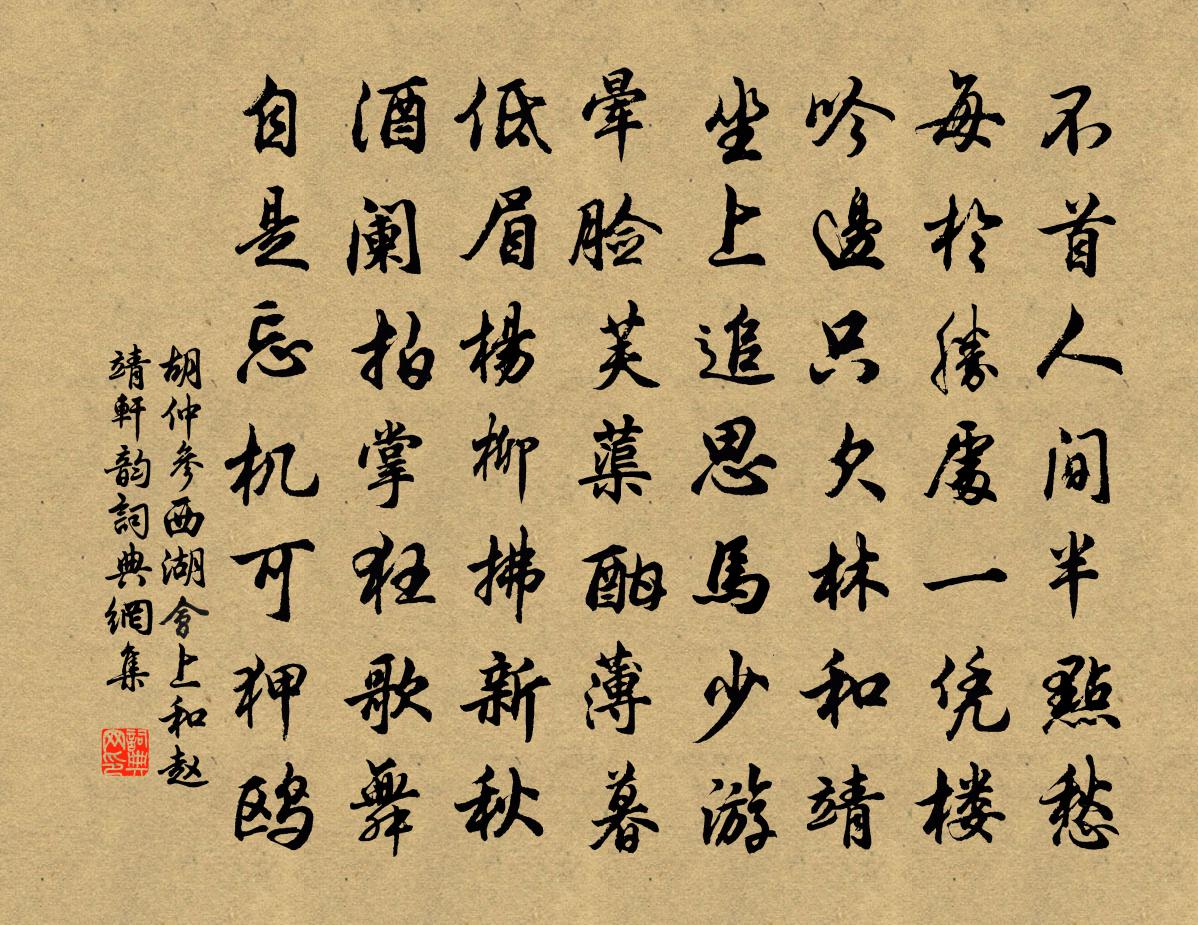 不首人间半點愁
每於勝處一凭楼
吟邊只欠林和靖
坐上追思馬少游
暈臉芙蕖酣薄暮
低眉楊柳拂新秋
酒阑拍掌狂歌舞
自是忘机可狎鸥
胡仲參西湖會上和赵
靖軒韵詞典網集
詞典
网印